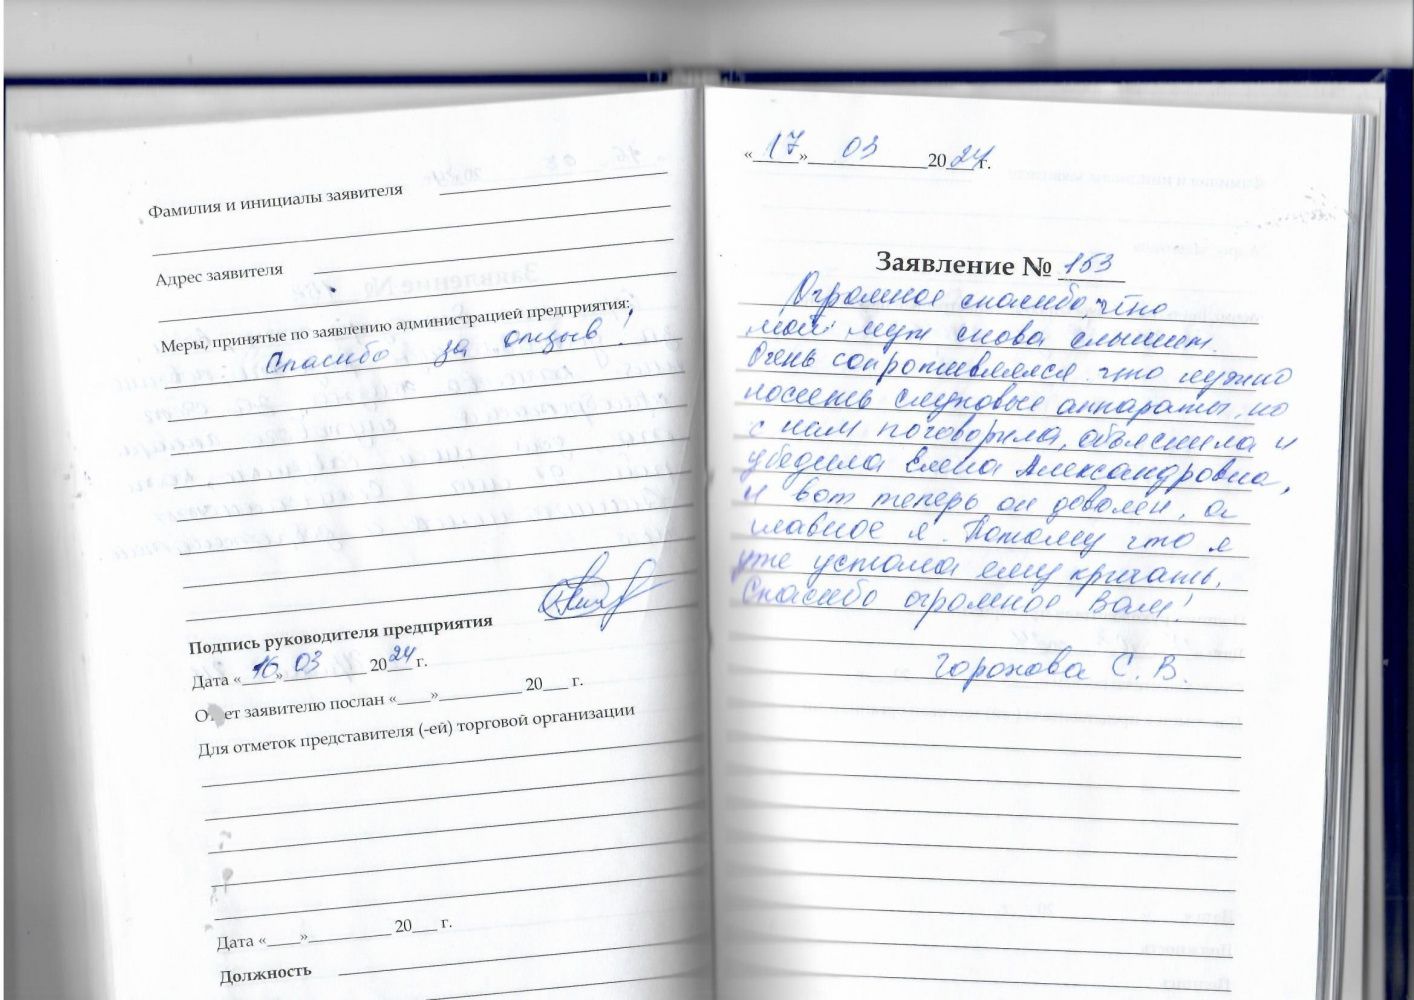 Фамилия и инициалы заявителя
Адрес заявителя
Меры, принятые по заявлению администрацией предприятия:
Спасибо за отзыв!
Подпись руководителя предприятия
Дата «16» 03 2024 г.
Ответ заявителю послан «___»__________ 20___ г.
Для отметок представителя (-ей) торговой организации
Дата «____»__________ 20___ г.
Должность
«17» 03 2024 г.
Заявление № 153
Огромное спасибо, что
мой муж снова слышит.
Очень сопротивлялся что нужно
носить слуховые аппараты, но
с нам поговорила, объяснила и
убедила Елена Александровна,
и вот теперь он доволен, а
главное я. Потому что я
уже устала ему кричать.
Спасибо огромное Вам!
Горохова С. В.